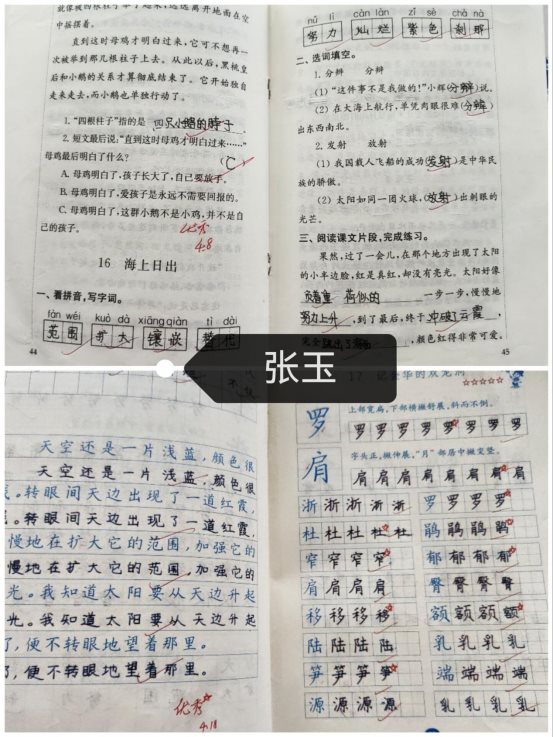 就像被四根柱子牵了起来,远远离开地面在空
中摇摆着。
直到这时母鸡才明白过来,它可不想再一
次被举到那几根柱子上去。从此以后,黑桃皇
后和小鹅的关系才算彻底结束了。它开始独自
走来走去,而小鹅也单独行动了。
1. “四根柱子”指的是 四只小鹅的脖子
2. 短文最后说:“直到这时母鸡才明白过来……”
母鸡最后明白了什么? (C)
A. 母鸡明白了,孩子长大了,自己要放手。
B. 母鸡明白了,爱孩子是永远不需要回报的。
C. 母鸡明白了,这群小鹅不是小鸡,并不是自
己的孩子。
优秀
4.8
16 海上日出
一、看拼音,写字词。
fàn wéi kuò dà xiāng qiàn tì dài
范围 扩大 镶嵌 替代
44
nǔ lì càn làn zǐ sè chà nà
努力 灿烂 紫色 刹那
二、选词填空。
1. 分辩 分辨
(1) “这件事不是我做的!”小辉(分辩)说。
(2) 在大海上航行,单凭肉眼很难(分辨)
出东西南北。
2. 发射 放射
(1) 我国载人飞船的成功(发射)是中华民
族的骄傲。
(2) 太阳如同一团火球,(放射)出刺眼的
光芒。
三、阅读课文片段,完成练习。
果然,过了一会儿,在那个地方出现了太阳
的小半边脸,红是真红,却没有亮光。太阳好像
负着重 荷似的 一步一步,慢慢地
努力上升,到了最后,终于 冲破了云霞,
完全跳出了海面,颜色红得非常可爱。
45
张玉
天空还是一片浅蓝,颜色很
天空还是一片浅蓝,颜色很
。转眼间天边出现了一道红霞,
。转眼间天边出现了一道红霞,
慢地在扩大它的范围,加强它的
慢地在扩大它的范围,加强它的
光。我知道太阳要从天边升起
光。我知道太阳要从天边升起
了,便不转眼地望着那里。
了,便不转眼地望着那里。
优秀
4.18
17 记金华的双龙洞
罗 上部宽扁,下部横撇舒展,斜而不倒。
罗罗罗罗罗罗罗罗
肩 字头正,撇伸展,“月”部居中撇变竖。
肩肩肩肩肩肩肩肩
浙浙浙浙浙 罗罗罗罗
杜杜杜杜杜 鹃鹃鹃鹃
窄窄窄窄 郁郁郁郁
肩肩肩肩 臀臀臀臀
移移移移 额额额额
陆陆陆陆 乳乳乳乳
笋笋笋笋 端端端端
源源源源 乳乳乳乳